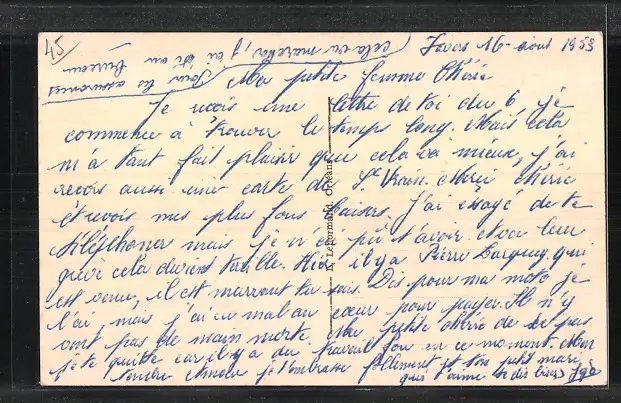 45
Javers 16 août 1953
Ma petite femme Chérie
Je reçois une lettre de toi du 6 je
commence à trouver le temps long. Mais cela
m'a tant fait plaisir que cela va mieux, j'ai
reçois aussi une carte de St Vrain. Merci Chérie
et reçois mes plus fous baisers. J'ai éssayé de te
téléphoner mais je n'ai pu t'avoir
cela devient il y a Pierre qui
est venu, il est marrant tu sais. Dis pour ma moto je
l'ai mais j'ai eu mal au cœur pour payer. Il n'y
vont pas de main morte. Ma petite chérie
je te quitte car il y a du travail fou en ce moment. Mon
tendre Amour je t'embrasse follement ton petit mari
qui t'aime
Pour les assurances
cela va marcher, j'ai été au
bureau
L. Lenormand, Orléans